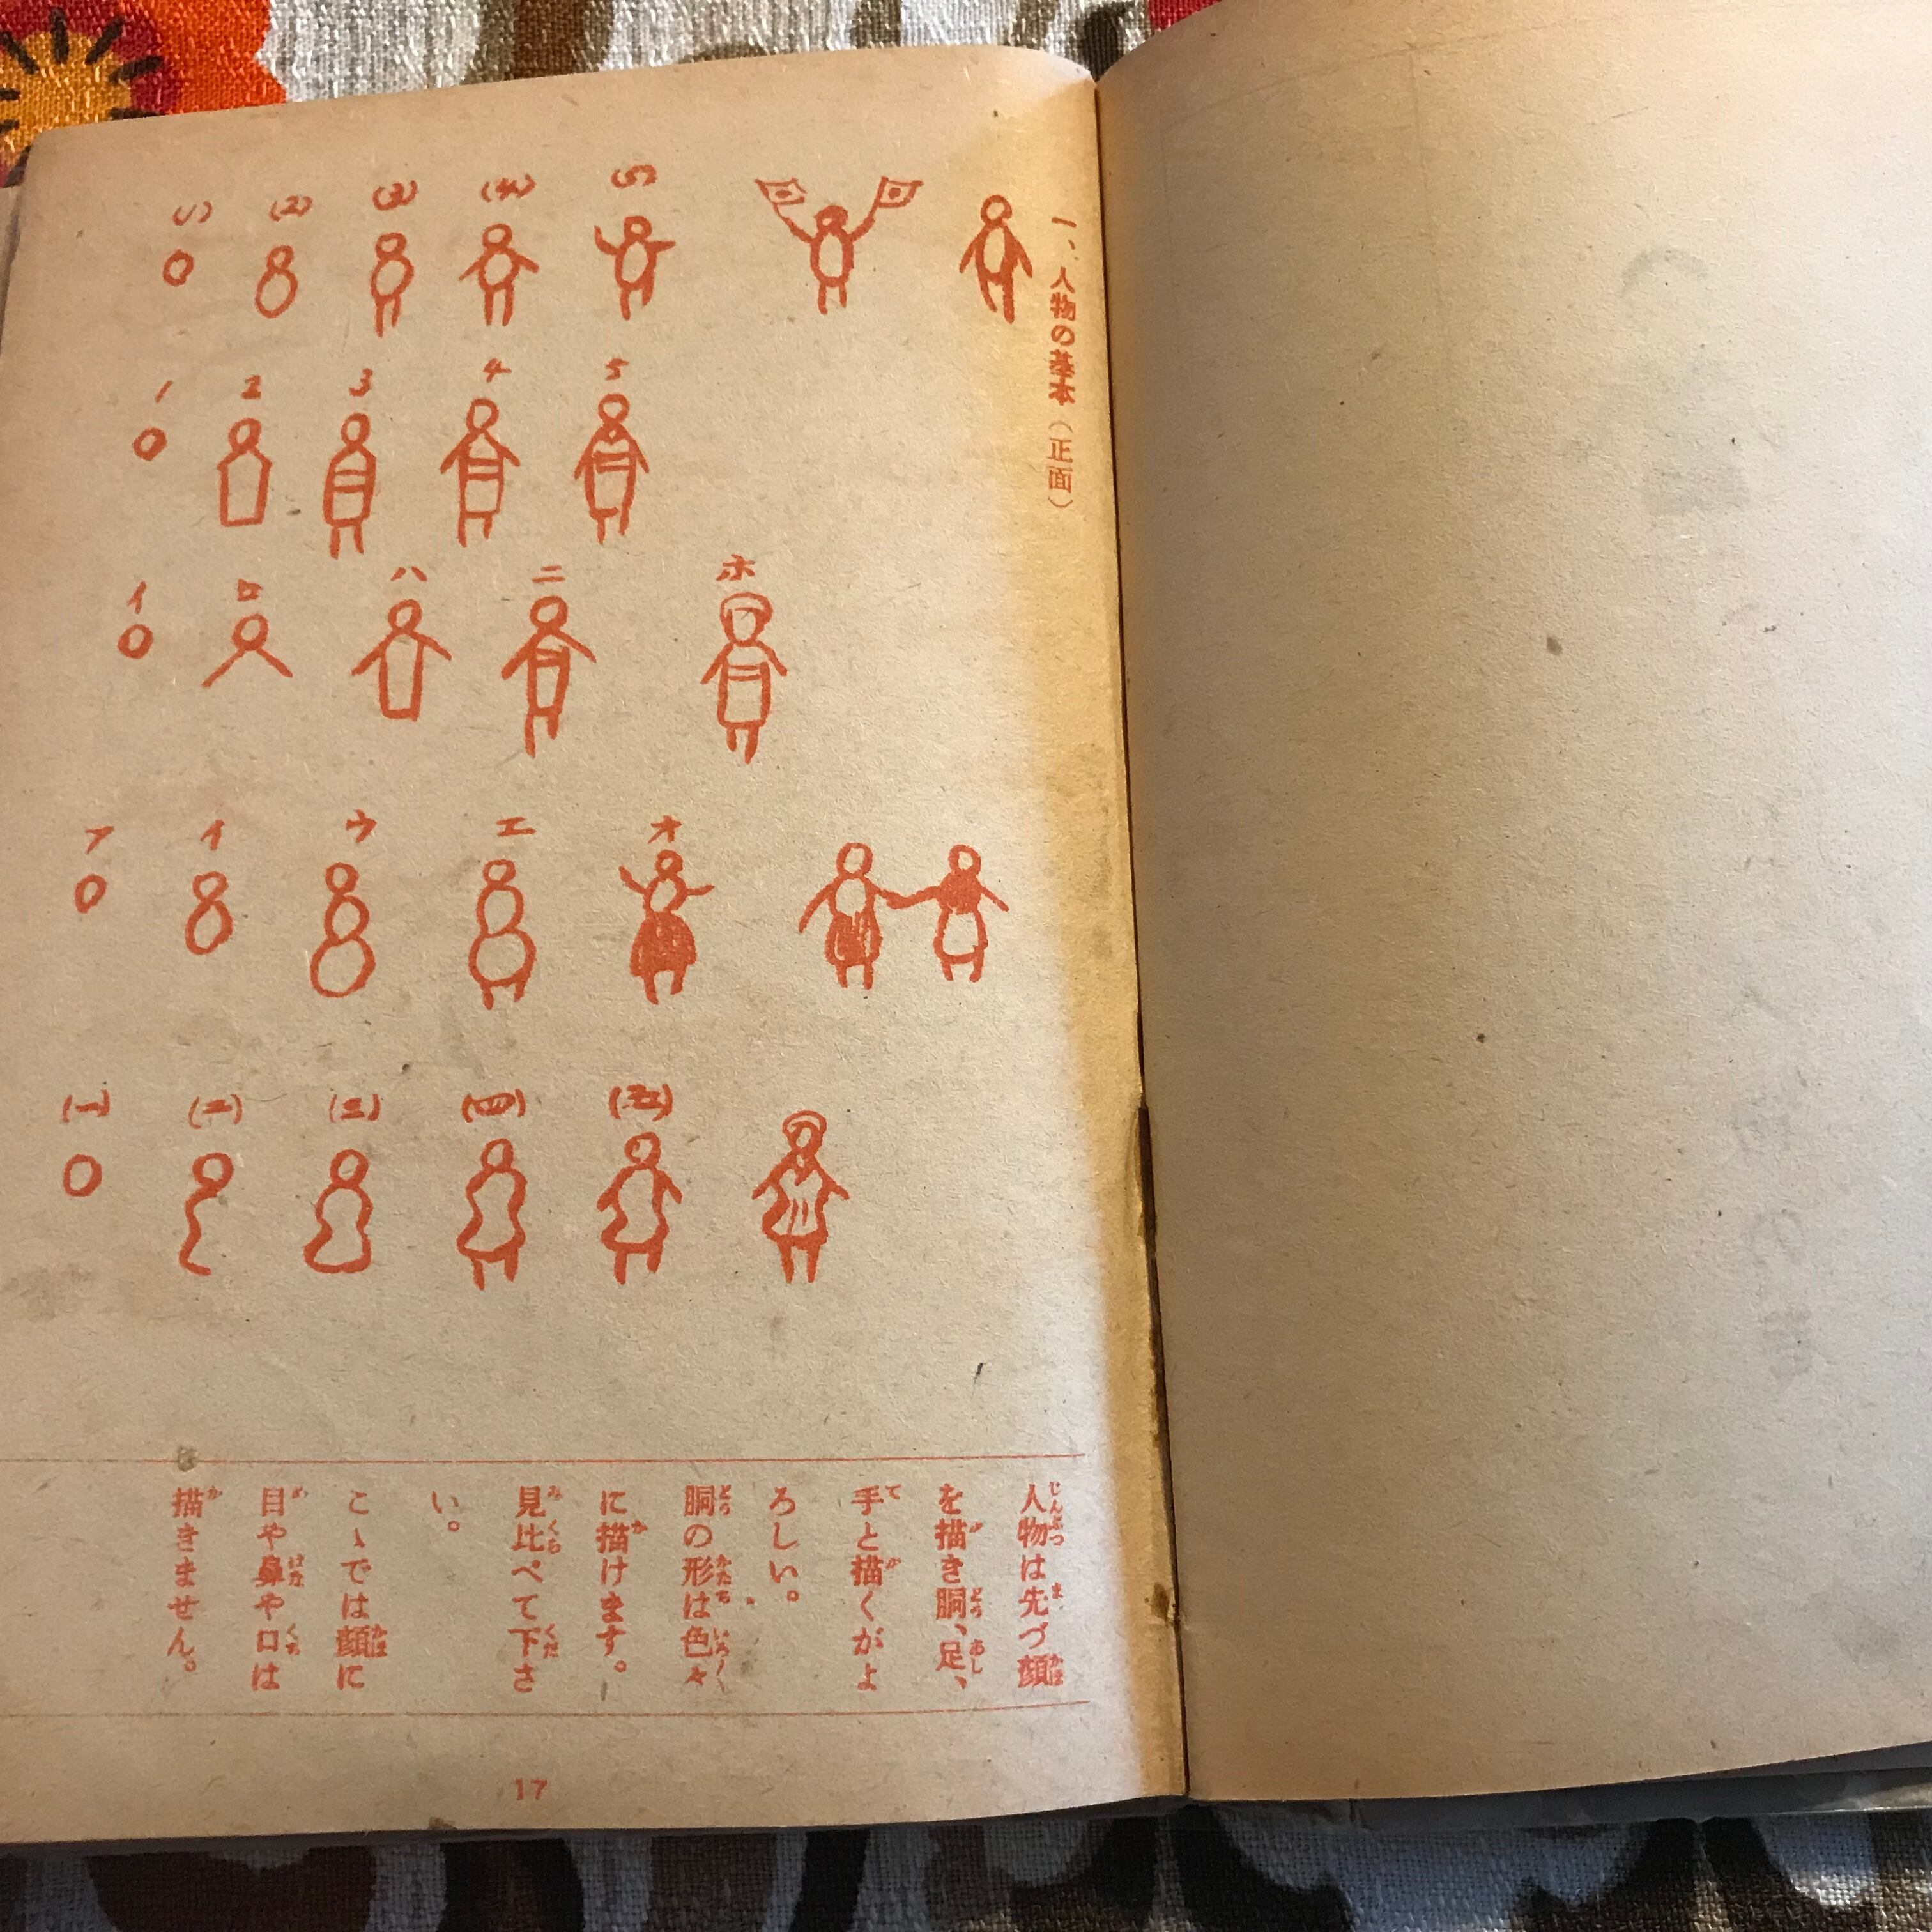 一、人物の基本（正面）
(1) (2) (3) (4) (5)
1 2 3 4 5
イ ロ ハ ニ ホ
ア イ ウ エ オ
(一) (二) (三) (四) (五)
人物は先づ顔
を描き胴、足、
手と描くがよ
ろしい。
胴の形は色々
に描けます。
見比べて下さ
い。
こゝでは顔に
目や鼻や口は
描きません。
17